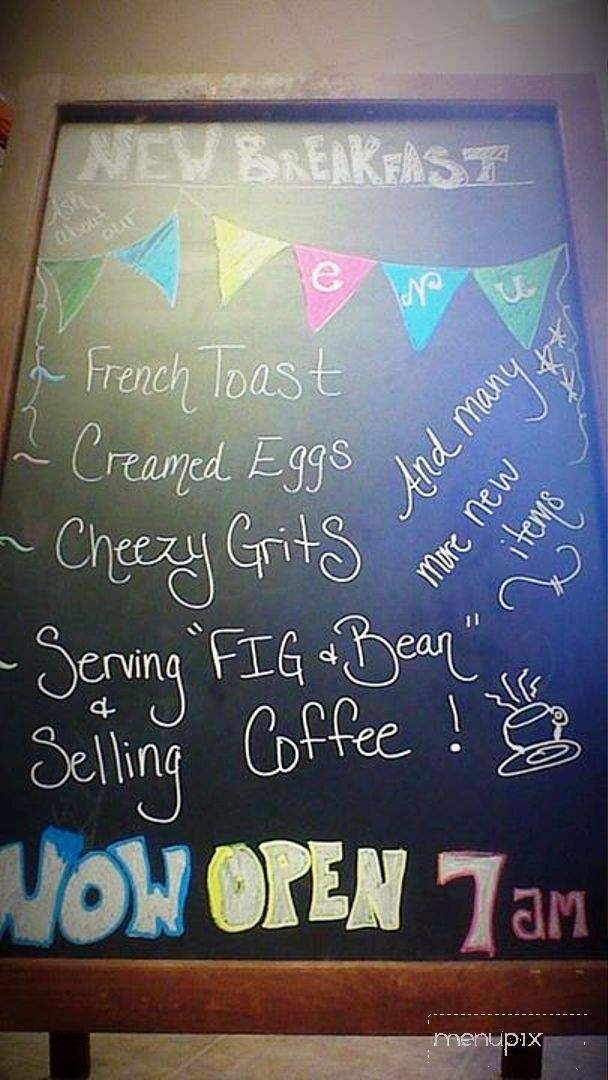 NEW BREAKFAST
Ask
about
our
enu
~ French Toast
~ Creamed Eggs
~ Cheezy Grits
And many
more new
items
~ Serving "FIG & Bean"
&
Selling Coffee !
NOW OPEN 7 am
menupix